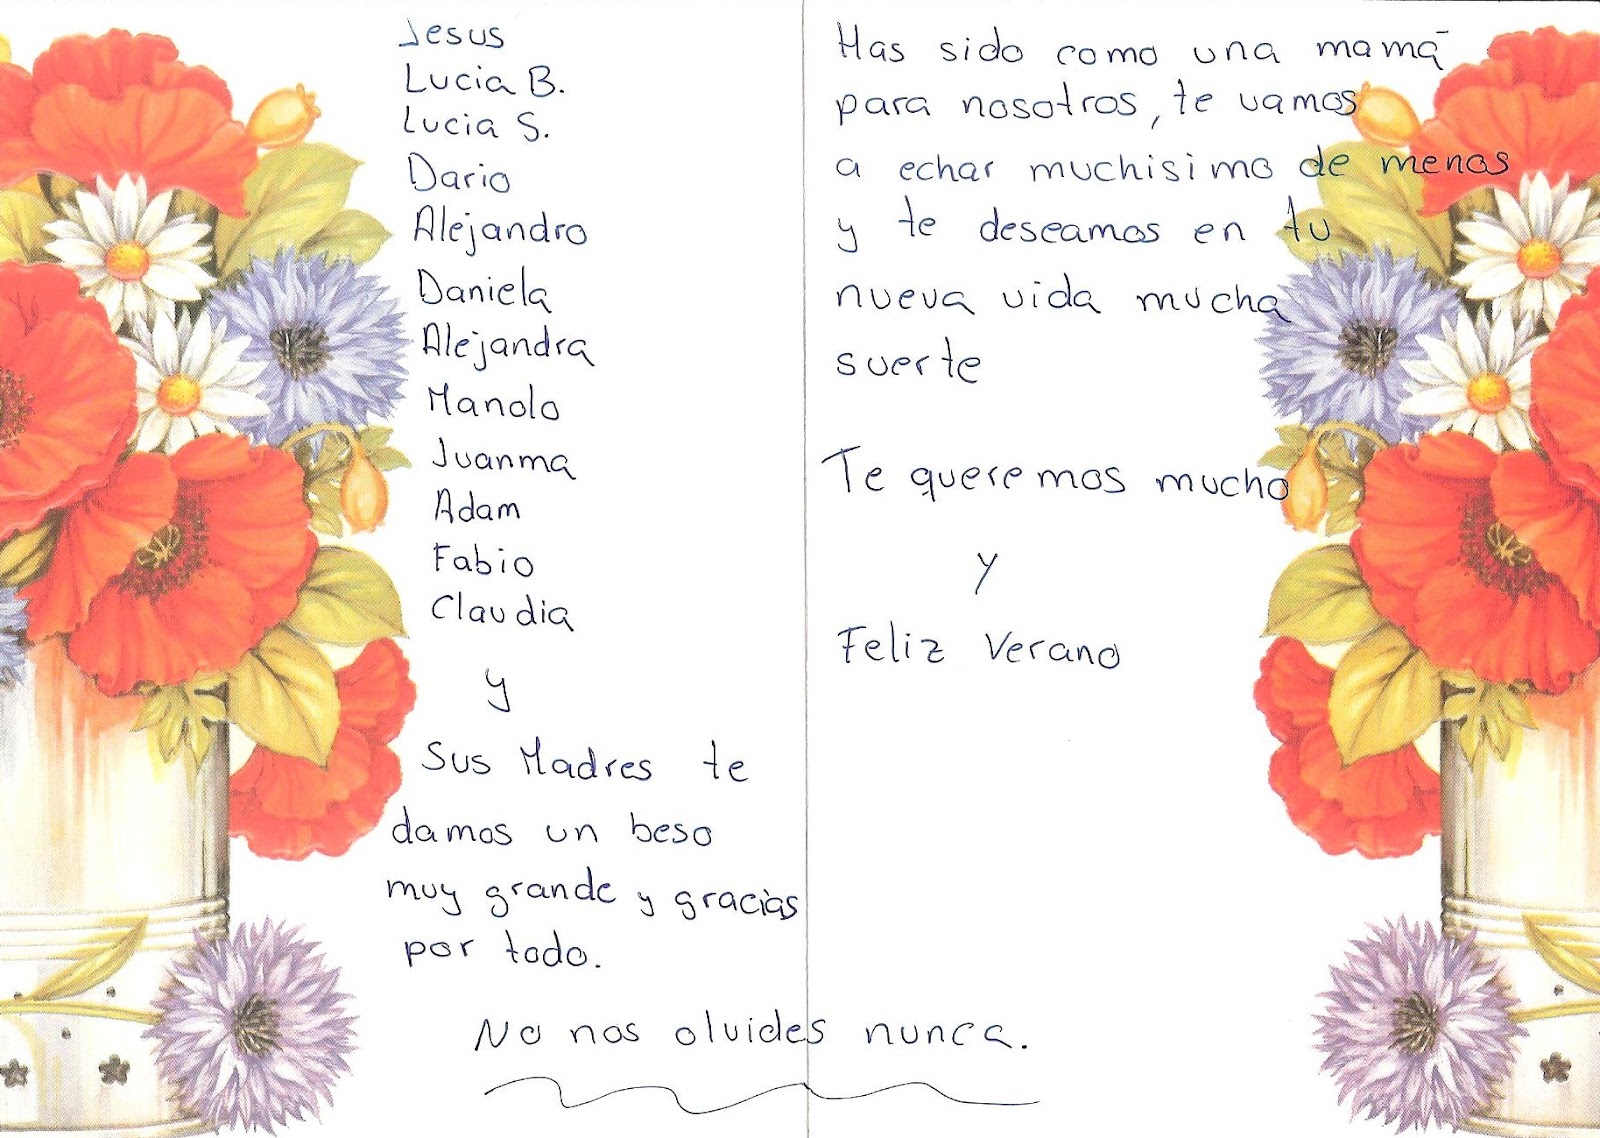 Jesus
Lucia B.
Lucia S.
Dario
Alejandro
Daniela
Alejandra
Manolo
Juanma
Adam
Fabio
Claudia
y
Sus Madres te
damos un beso
muy grande y gracias
por todo.
Has sido como una mamá
para nosotros, te vamos
a echar muchisimo de menos
y te deseamos en tu
nueva vida mucha
suerte
Te queremos mucho
y
Feliz Verano
No nos olvides nunca.